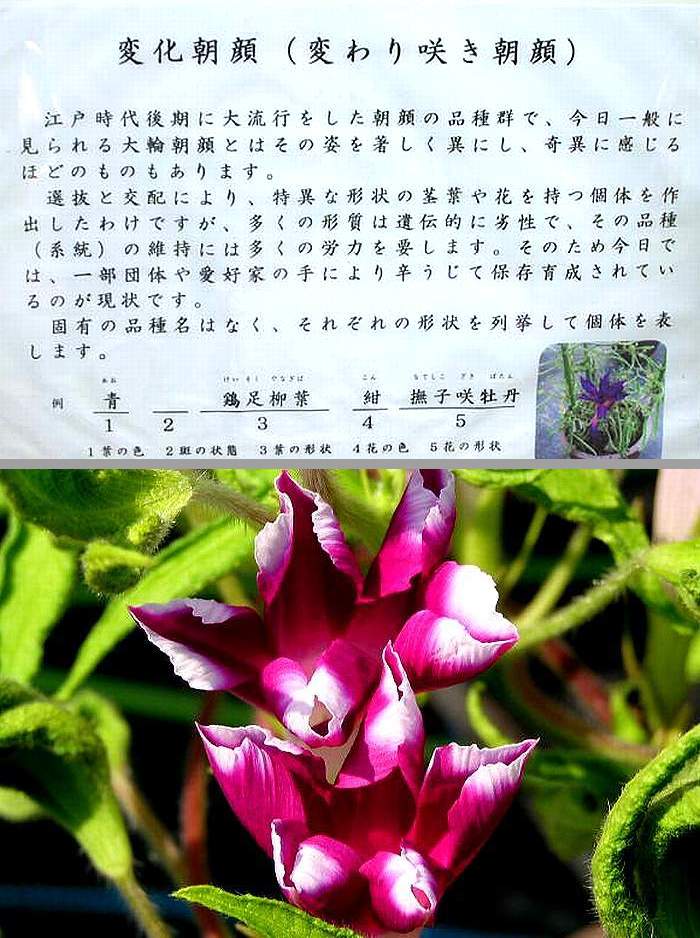 変化朝顔（変わり咲き朝顔）
江戸時代後期に大流行をした朝顔の品種群で、今日一般に
見られる大輪朝顔とはその姿を著しく異にし、奇異に感じる
ほどのものもあります。
選抜と交配により、特異な形状の茎葉や花を持つ個体を作
出したわけですが、多くの形質は遺伝的に劣性で、その品種
（系統）の維持には多くの労力を要します。そのため今日で
は、一部団体や愛好家の手により辛うじて保存育成されてい
るのが現状です。
固有の品種名はなく、それぞれの形状を列挙して個体を表
します。
あお けいそく やなぎば こん なでしこ ざき ぼたん
例 青 鶏足柳葉 紺 撫子咲牡丹
1 2 3 4 5
1葉の色 2斑の状態 3葉の形状 4花の色 5花の形状